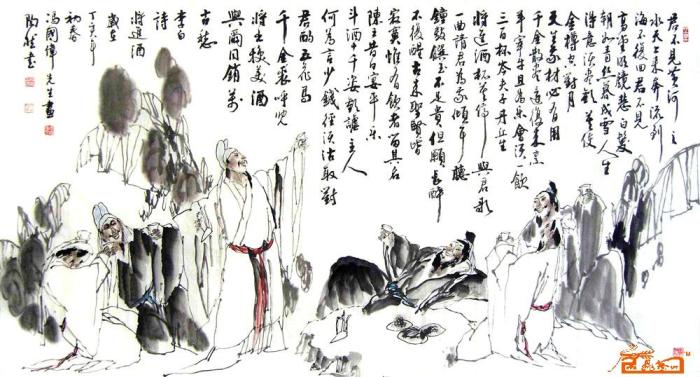 君不見黃河之
水天上來奔流到
海不復回君不見
高堂明鏡悲白髮
朝如青絲暮成雪人生
得意須盡歡莫使
金樽空對月
天生我材必有用
千金散盡還復來烹
羊宰牛且為樂會須一飲
三百杯岑夫子丹丘生
將進酒杯莫停與君歌
一曲請君為我傾耳聽
鐘鼓饌玉不足貴但願長醉
不復醒古來聖賢皆
寂寞惟有飲者留其名
陳王昔日宴平樂
斗酒十千恣歡謔主人
何為言少錢徑須沽取對
君酌五花馬
千金裘呼兒
將出換美酒
與爾同銷萬
古愁
李白
詩
將進酒
歲在
丁亥年
馮國偉先生畫